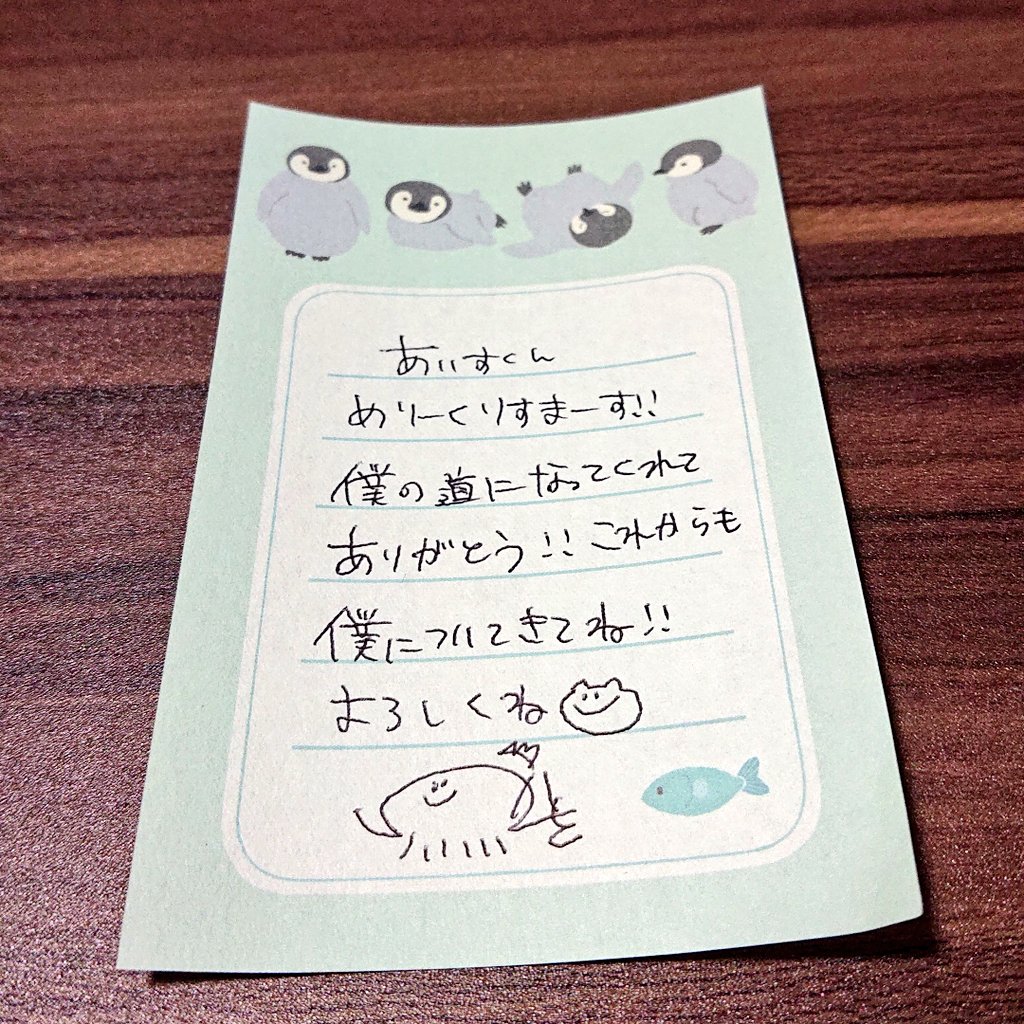 あいすくん
めりーくりすまーす!!
僕の道になってくれて
ありがとう!!これからも
僕についてきてね!!
よろしくね